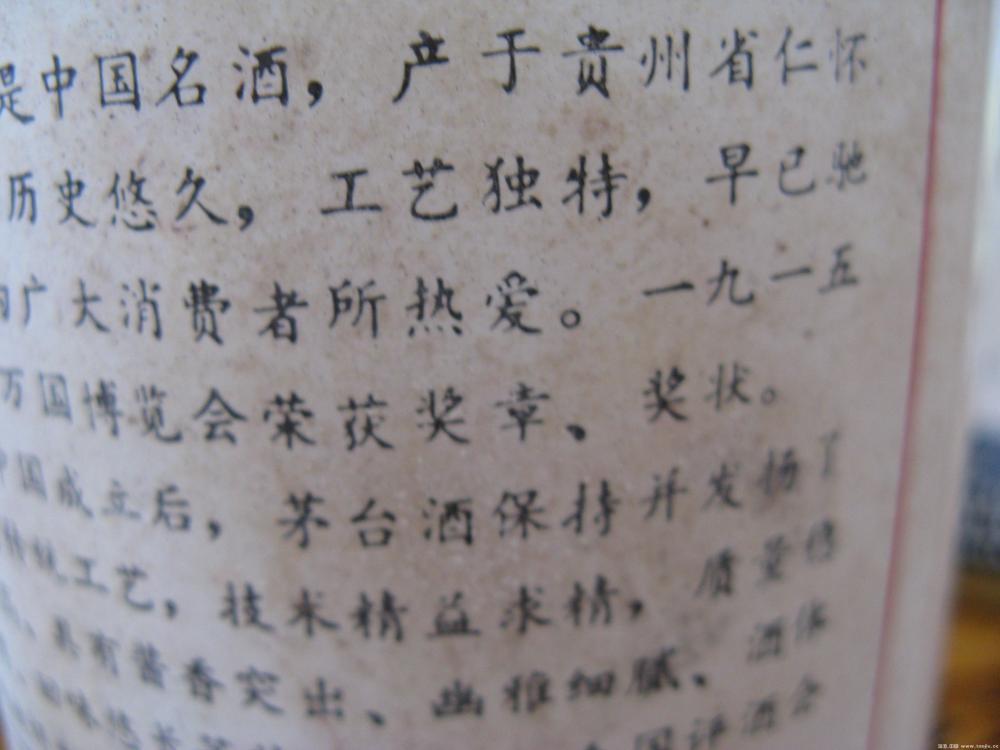 是中国名酒，产于贵州省仁怀
历史悠久，工艺独特，早已驰
广大消费者所热爱。一九一五
万国博览会荣获奖章、奖状。
中国成立后，茅台酒保持并发扬了
工艺，技术精益求精，质量
具有酱香突出、幽雅细腻、酒体
回味悠长
国评酒会